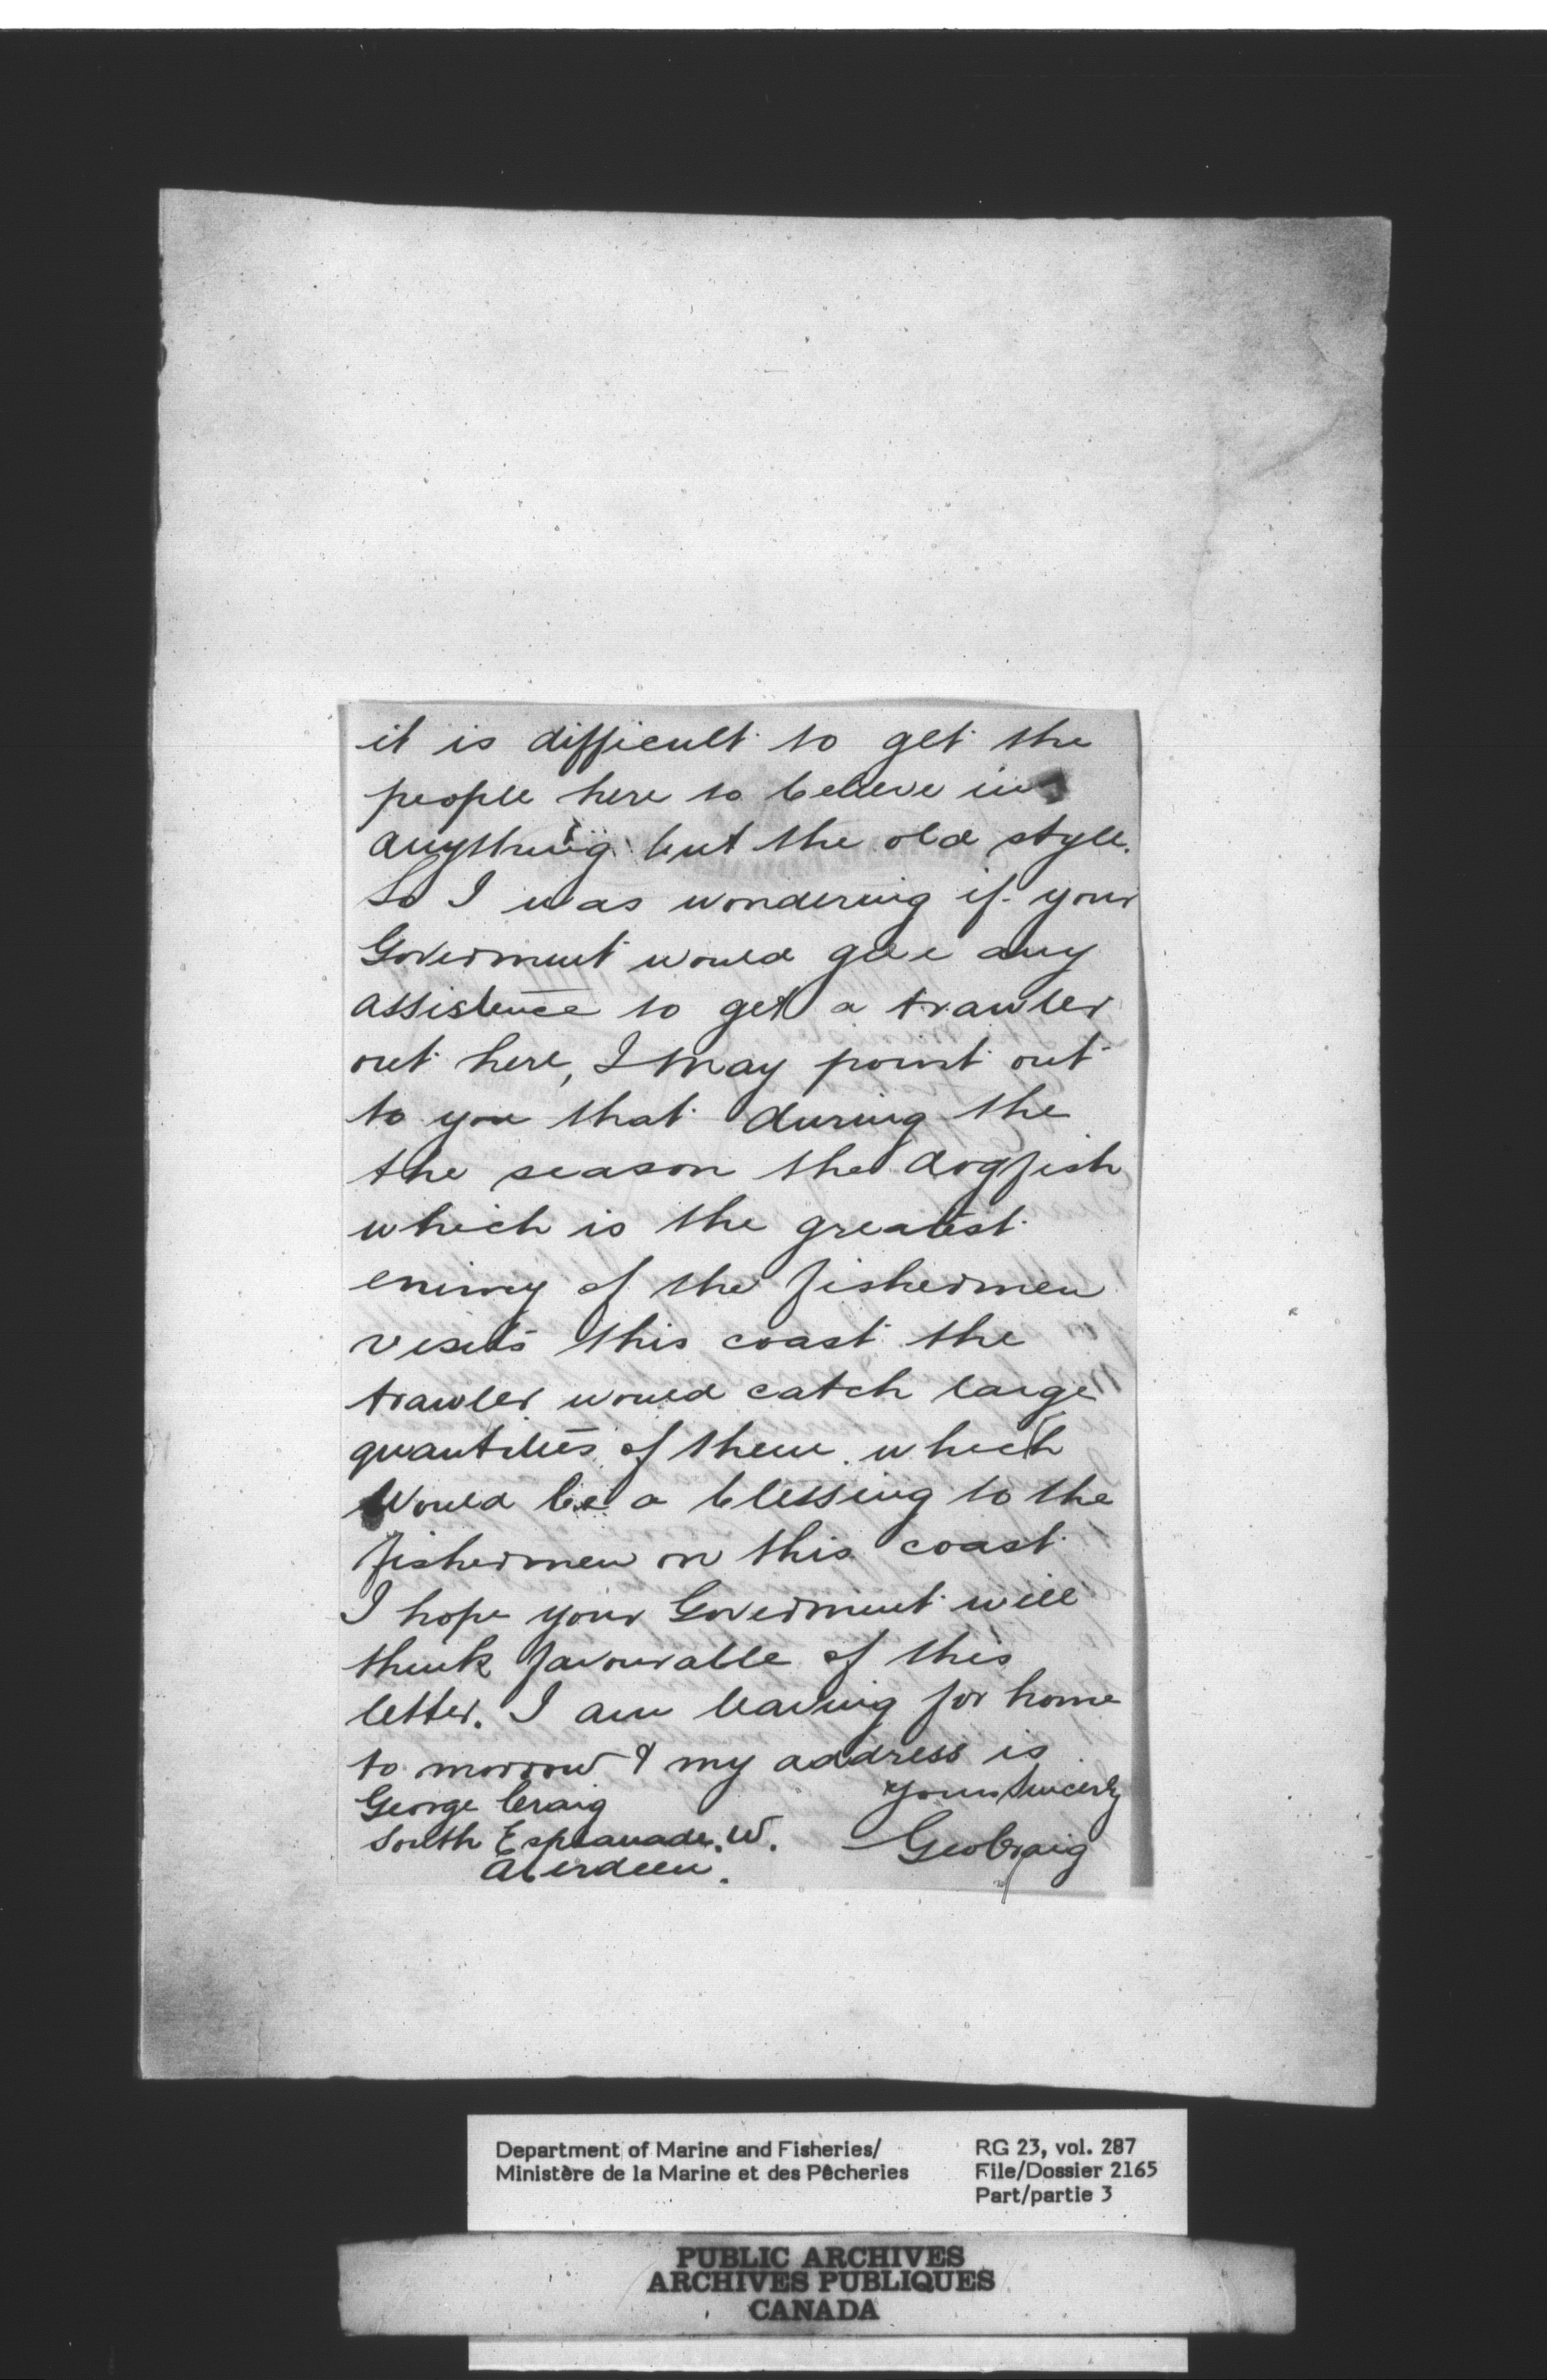 it is difficult to get the
people here to beleive in
anything but the old style.
So I was wondering if your
Goverment would give any
assistence to get a trawler
out here, I may point out
to you that during the
the season the dogfish
which is the greatest
enimy of the fishermen
visits this coast the
trawler would catch large
quantities of them. which
Would be a blessing to the
fishermen on this coast
I hope your Goverment will
think favourable of this
letter. I am leaving for home
to morrow & my address is
George Craig
Yours Sincerly
South Esplanade. W.
Geo Craig
Aberdeen.
Department of Marine and Fisheries/
Ministère de la Marine et des Pêcheries
RG 23, vol. 287
File/Dossier 2165
Part/partie 3
PUBLIC ARCHIVES
ARCHIVES PUBLIQUES
CANADA